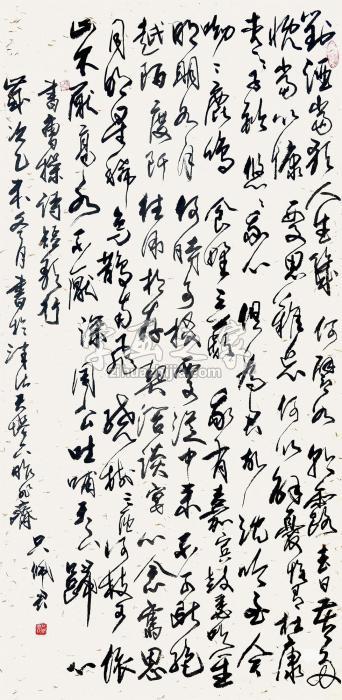 對酒當歌人生幾何譬如朝露去日苦多
慨當以慷憂思難忘何以解憂惟有杜康
青々子衿悠々我心但為君故沈吟至今
呦々鹿鳴食野之苹我有嘉宾鼓瑟吹笙
明明如月何時可掇憂從中来不可断绝
越陌度阡枉用相存契阔談宴心念舊恩
月明星稀烏鵲南飛繞樹三匝何枝可依
山不厭高水不厭深周公吐哺天下歸心
書曹操詩短歌行
歲次乙未冬月書於
字画之家